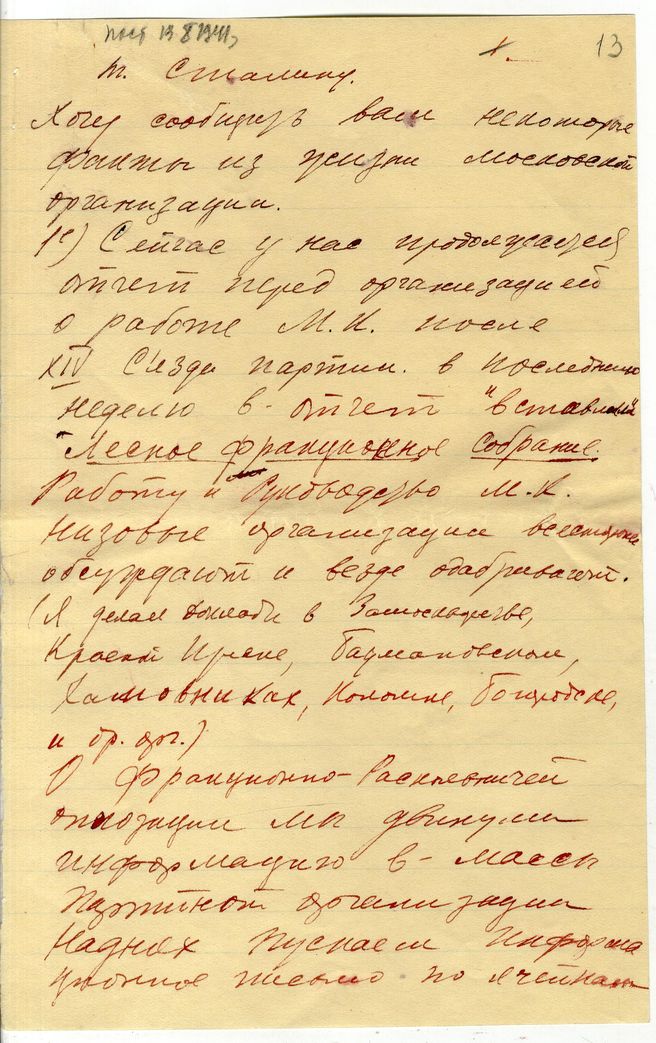 13
т. Сталину.
Хочу сообщить вам некоторые
факты из жизни московской
организации.
1е) Сейчас у нас продолжается
отчет перед организацией
о работе М.К. после
XIV С'езда партии. в последнюю
неделю в отчет "вставили"
"Лесное фракционное собрание.
Работу и Руководство М.К.
низовые организации
обсуждают и везде одабривают.
(Я делал доклады в Замоскворечье,
Красной Пресне, Баумановском,
Хамовниках, Коломне, Богородске,
и др. орг.)
О фракционно-Раскольничей
опозации мы двинули
информацию в - массы
партийной организации
На днях пускаем Информа
ционное письмо по ячейкам